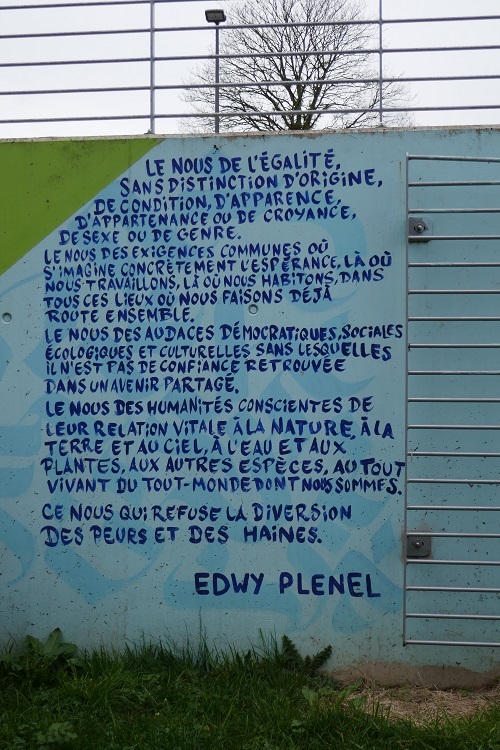 LE NOUS DE L'ÉGALITÉ,
SANS DISTINCTION D'ORIGINE,
DE CONDITION, D'APPARENCE,
D'APPARTENANCE OU DE CROYANCE,
DE SEXE OU DE GENRE.
LE NOUS DES EXIGENCES COMMUNES OÙ
S'IMAGINE CONCRÈTEMENT L'ESPÉRANCE, LÀ OÙ
NOUS TRAVAILLONS, LÀ OÙ NOUS HABITONS, DANS
TOUS CES LIEUX OÙ NOUS FAISONS DÉJÀ
ROUTE ENSEMBLE.
LE NOUS DES AUDACES DÉMOCRATIQUES, SOCIALES
ÉCOLOGIQUES ET CULTURELLES SANS LESQUELLES
IL N'EST PAS DE CONFIANCE RETROUVÉE
DANS UN AVENIR PARTAGÉ.
LE NOUS DES HUMANITÉS CONSCIENTES DE
LEUR RELATION VITALE À LA NATURE, À LA
TERRE ET AU CIEL, À L'EAU ET AUX
PLANTES, AUX AUTRES ESPÈCES, AU TOUT
VIVANT DU TOUT-MONDE DONT NOUS SOMMES.
CE NOUS QUI REFUSE LA DIVERSION
DES PEURS ET DES HAINES.
EDWY PLENEL